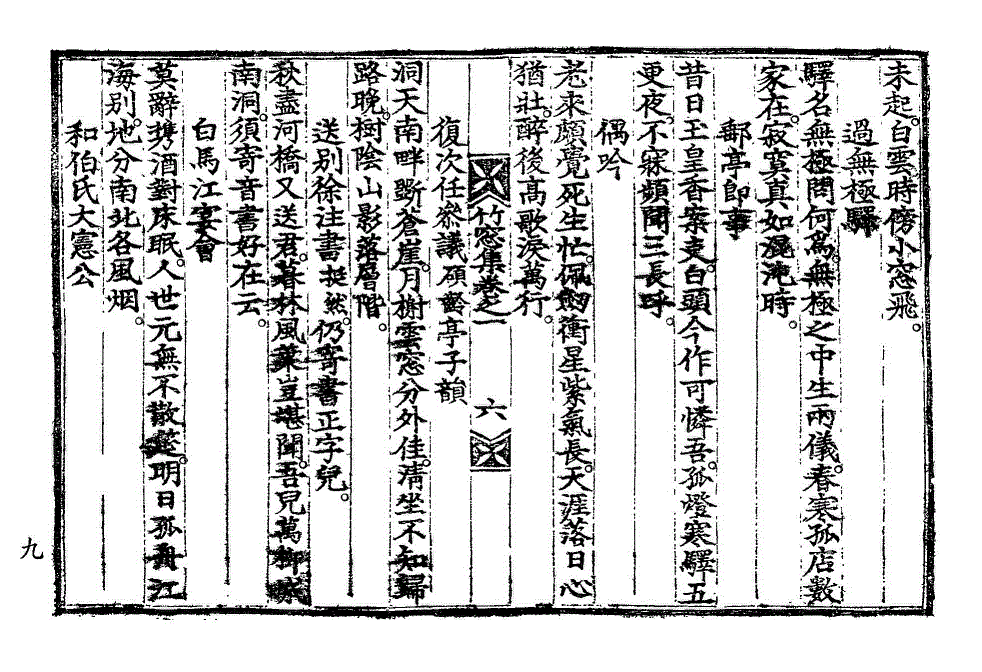 未起。白雲時傍小窓飛。
過無極驛
驛名無極問何爲。無極之中生兩儀。春寒孤店數
家在。寂寞真如混沌時。
鄱亭即事
昔日玉皇香案吏。白頭今作可憐吾。孤燈寒驛五
更夜。不寐頻聞三長呼。
偶吟
老來頗覺死生忙。佩劒衝星紫氣長。天涯落日心
猶壯。醉後高歌淚萬行。
竹窓集卷之一
六
復次任叅議碩齡亭子韻
洞天南畔斲蒼崖。月榭雲窓分外佳。淸坐不知歸
路晩。樹陰山影落層階。
送別徐注書挺然。仍寄書正字兒。
秋盡河橋又送君。暮林風葉豈堪聞。吾兒萬
南洞。須寄音書好在云。
白馬江宴會
莫辭携酒對床眠。人世元無不散筵。明日孤舟江
海別。地分南北各風烟。
和伯氏大憲公
九